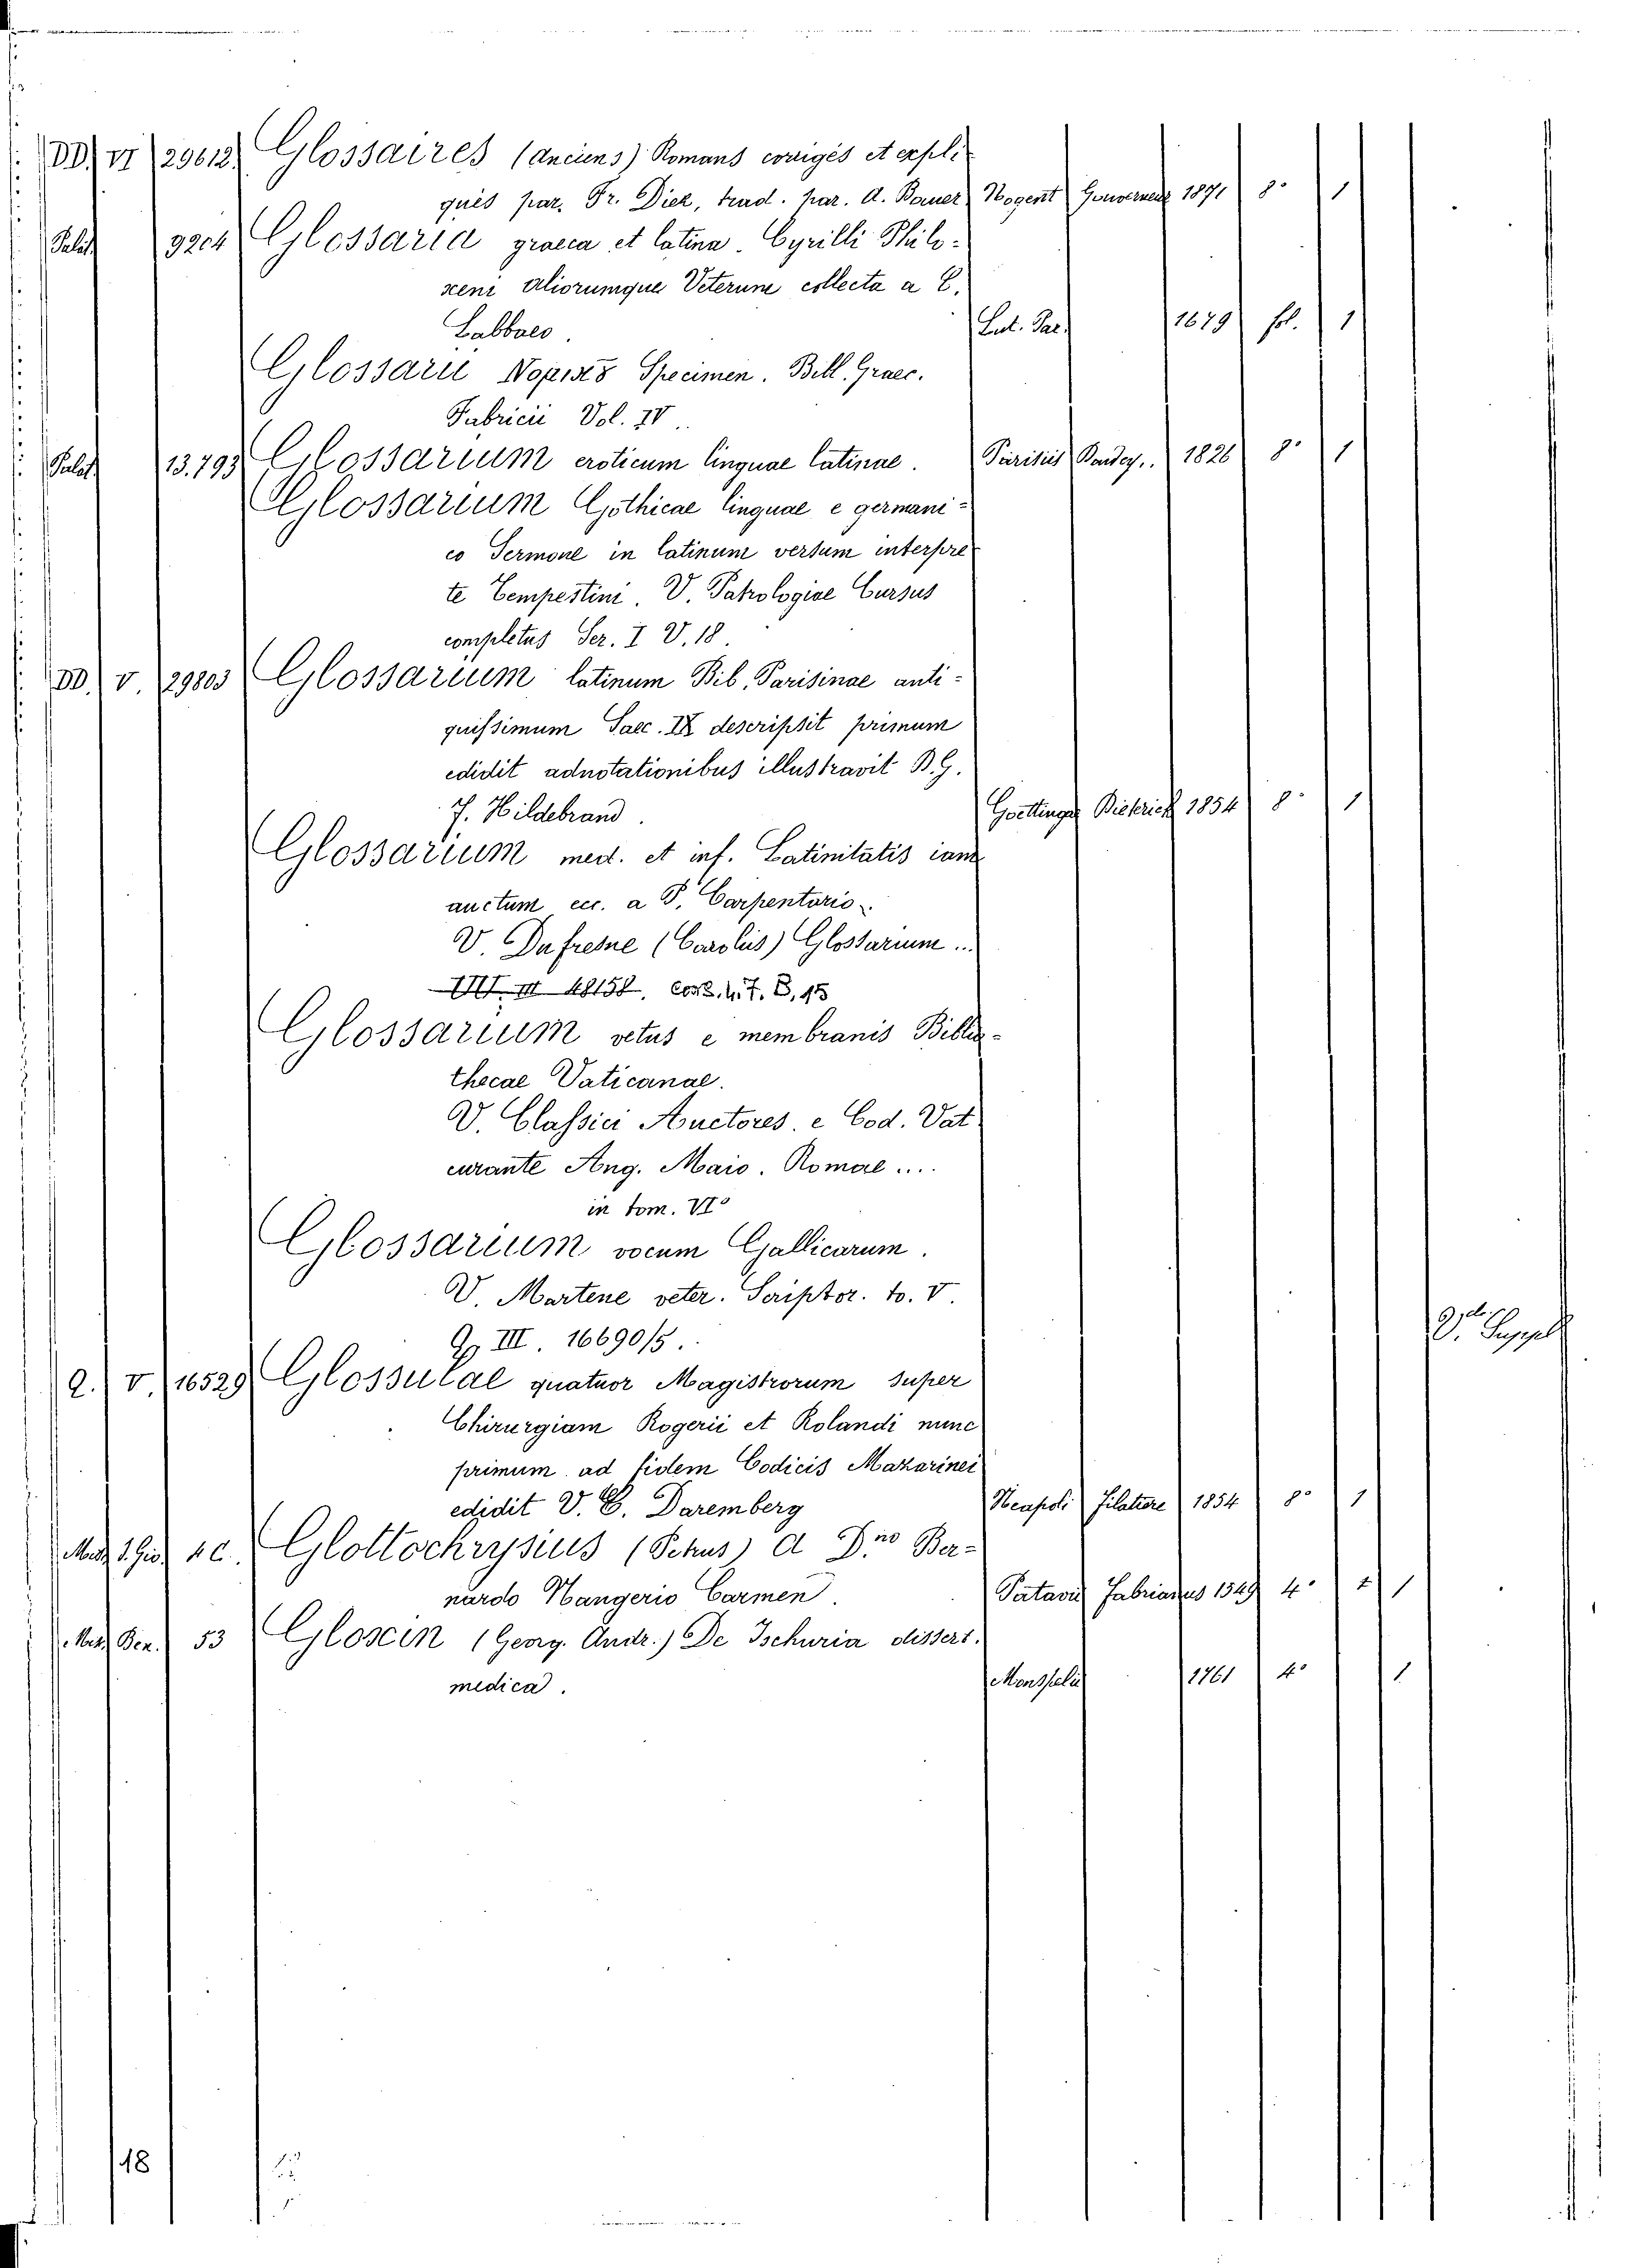 DD. VI 29612. Glossaires (Anciens) Romans corrigés et expli-
qués par Fr. Diez, trad. par. A. Bauer Nogent Gouverneur 1871 8° 1
Palat 9204 Glossaria graeca et latina. Cyrilli Philo-
xeni aliorumque Veterum collecta a C.
Labbaeo. Lut. Par. 1679 fol. 1
Glossarii Νομικοῦ Specimen. Bill. Graec.
Fabricii Vol. IV..
Palat 13.793 Glossarium eroticum linguae latinae. Parisiis 1826 8° 1
Glossarium Gothicae linguae e germani-
co Sermone in latinum versum interpre-
te Tempestini. V. Patrologiae Cursus
completus Ser. I V. 18.
DD. V. 29803 Glossarium latinum Bib. Parisinae anti-
quissimum Saec. IX descripsit primum
edidit adnotationibus illustravit B.G.
F. Hildebrand. Goettingae Dieterich 1854 8° 1
Glossarium med. et inf. Latinitatis iam
auctum ecc. a P. Carpentario.
V. Dufresne (Carolus) Glossarium...
III. III 48158. cors. 4. 7. B, 15
Glossarium vetus e membranis Biblio-
thecae Vaticanae.
V. Classici Auctores. e Cod. Vat
curante Ang. Maio. Romae....
in tom. VI°
Glossarium vocum Gallicarum.
V. Martene veter. Scriptor. to. V.
Q. III. 16690/5.
V. Suppl
Q. V. 16529 Glossulae quatuor Magistrorum super
Chirurgiam Rogerii et Rolandi nunc
primum ad fidem Codicis Mazarinei
edidit V. C. Daremberg Neapoli Filatiere 1854 8° 1
4 C. Glottochrysius (Petrus) a Dno Ber-
nardo Nangerio Carmen. Patavii Fabrianus 1549 4° 1
Ben. 53 Gloxin (Georg. Andr.) De Ischuria dissert.
medica. Monspelii 1761 4° 1
18